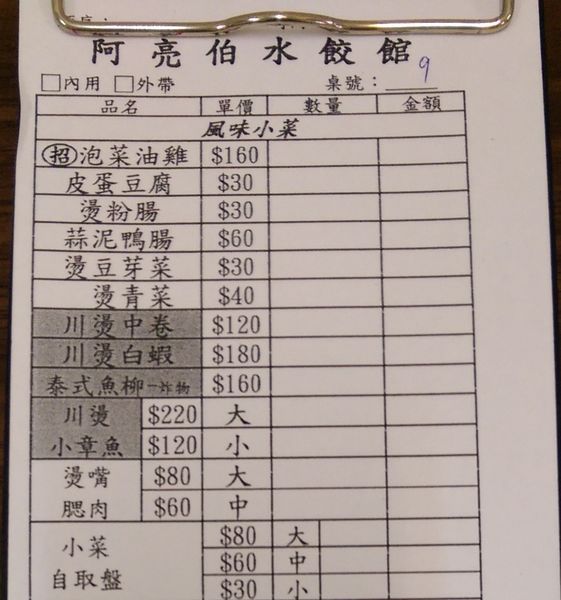 阿亮伯水餃館
內用 外帶 桌號： 9
品名 單價 數量 金額
風味小菜
招 泡菜油雞 $160
皮蛋豆腐 $30
燙粉腸 $30
蒜泥鴨腸 $60
燙豆芽菜 $30
燙青菜 $40
川燙中卷 $120
川燙白蝦 $180
泰式魚柳-炸物 $160
川燙 $220 大
小章魚 $120 小
燙嘴 $80 大
腮肉 $60 中
小菜 $80 大
自取盤 $60 中
$30 小